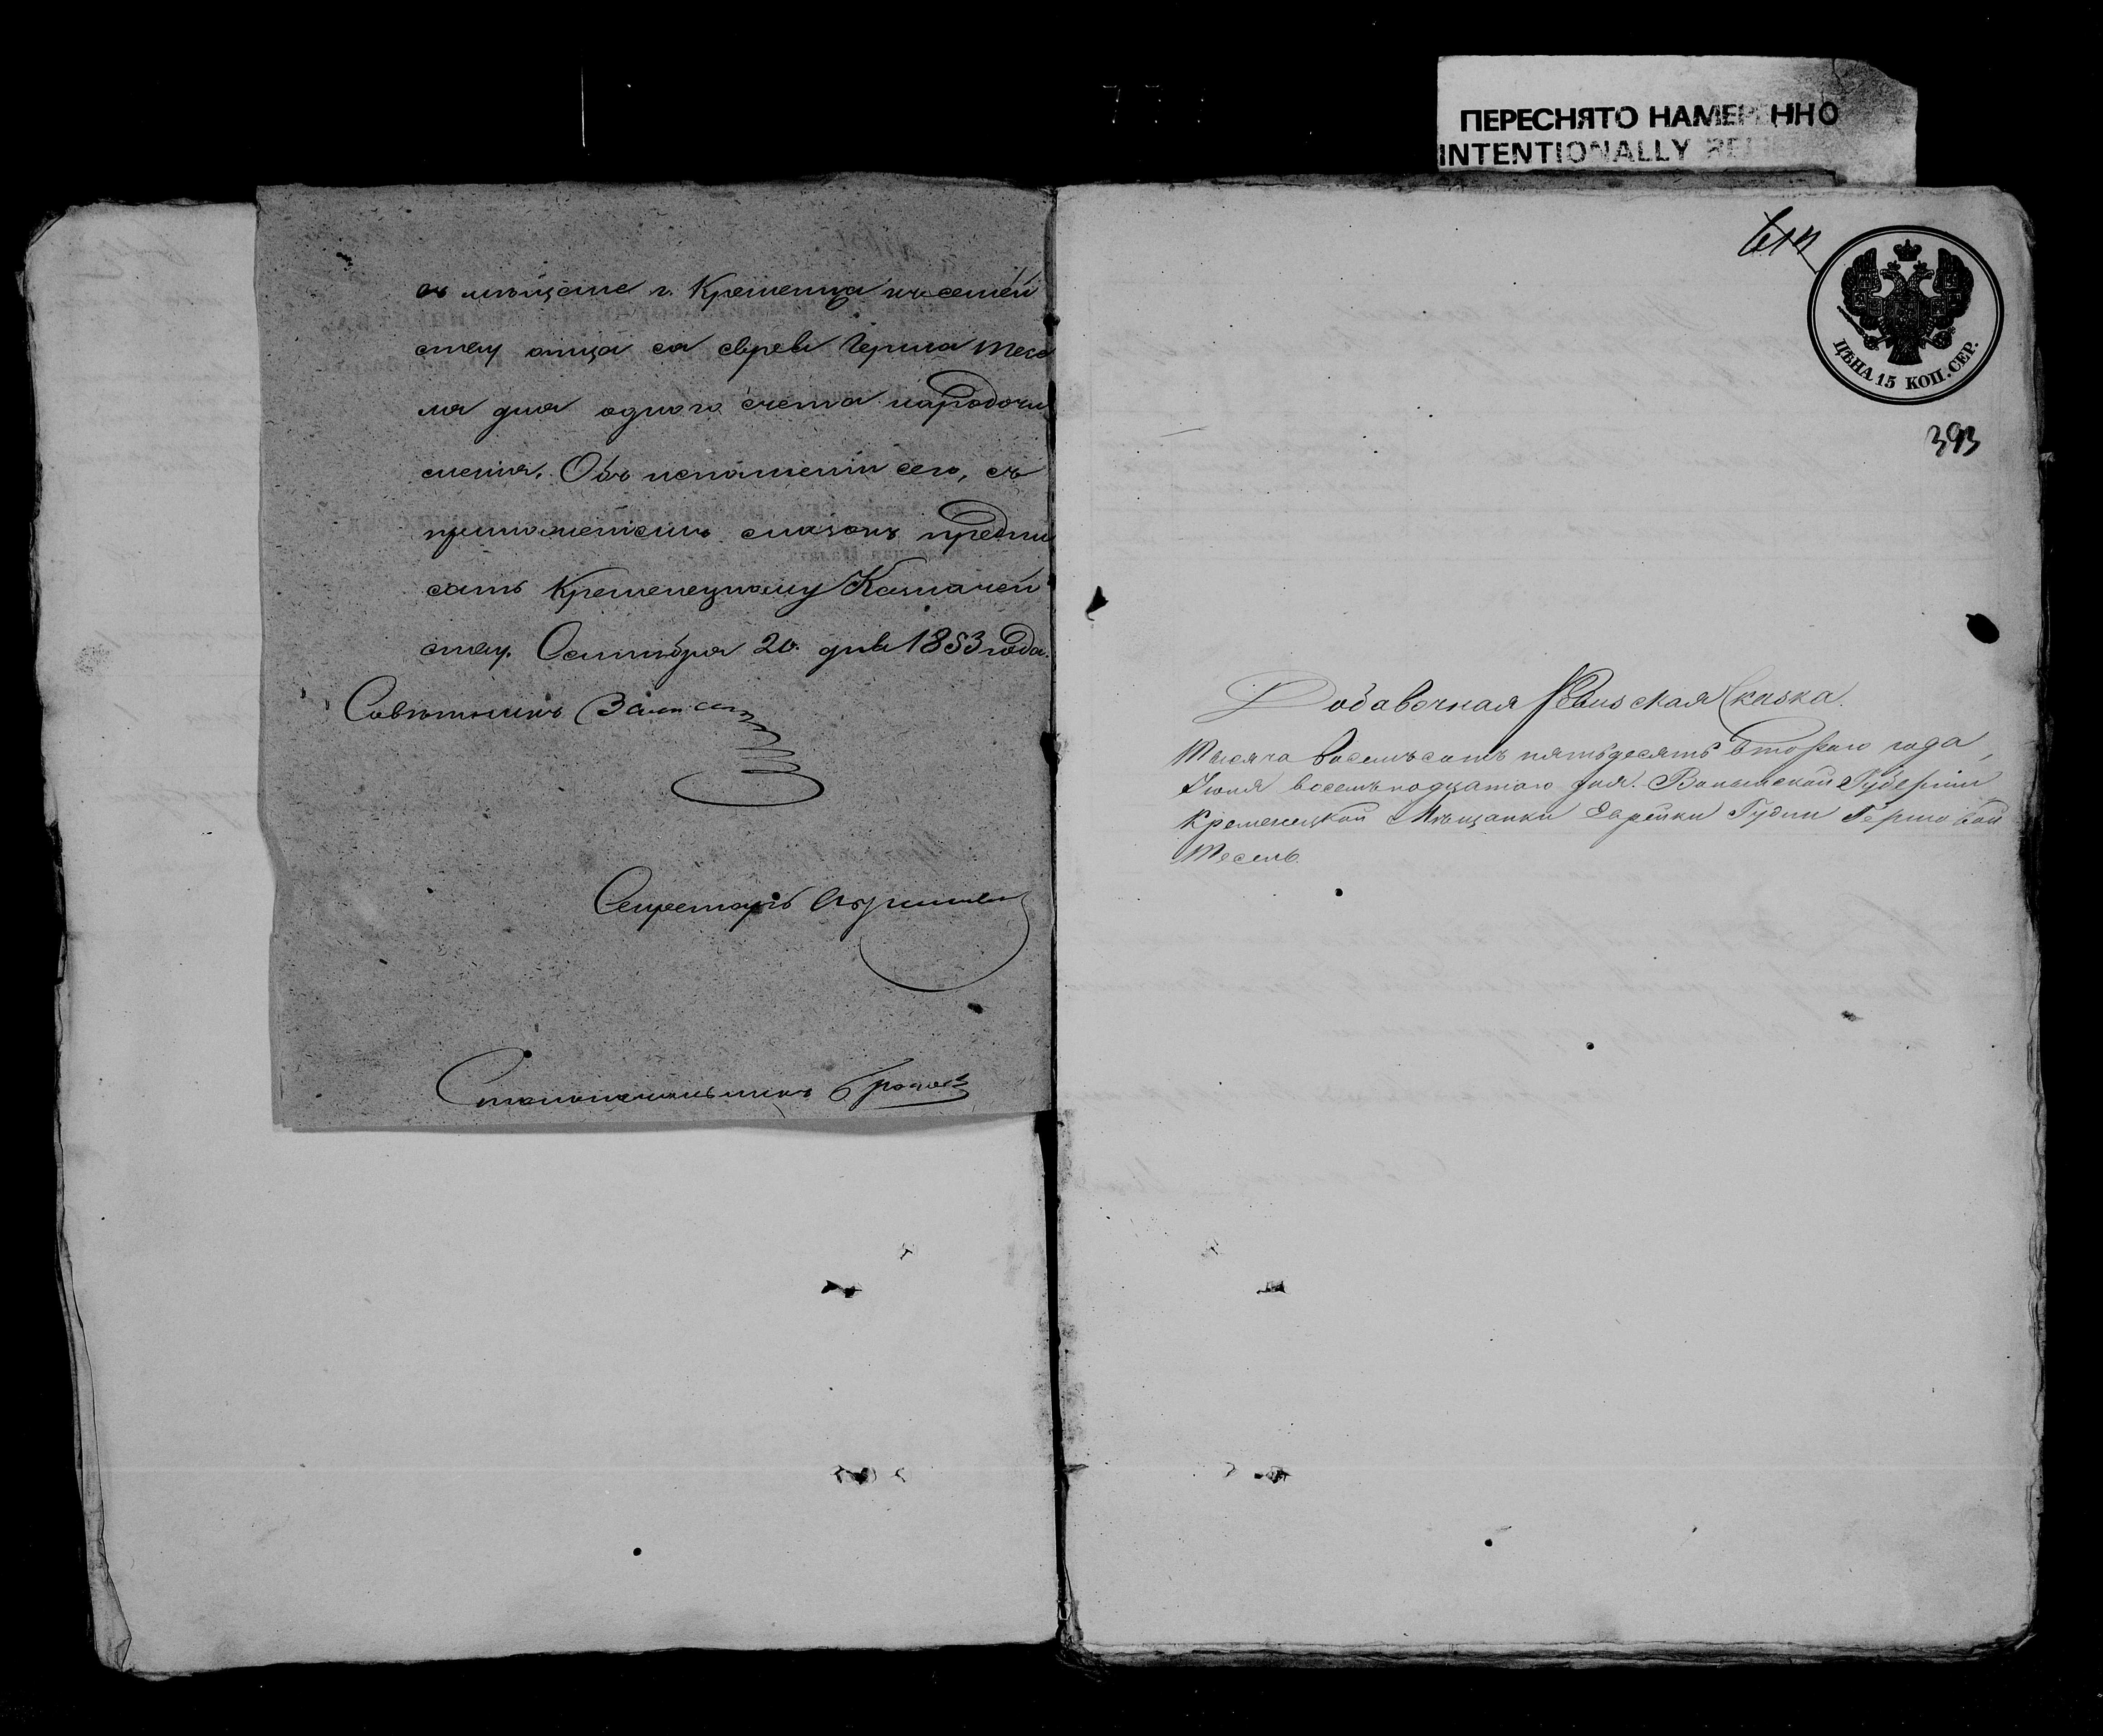 ПЕРЕСНЯТО НАМЕРЕННО
INTENTIONALLY
въ мѣщане г. Кременца къ семей
ству отца ея еврея Герша Тесе
ля для одного счета народочи
сленія. Объ исполненіи сего, съ
приложеніемъ сказокъ предпи
сать Кременецкому Казначей
ству. Сентября 20 дня 1853 года.
Совѣтникъ
Секретарь
Столоначальникъ
ЦѢНА 15 КОП. СЕР.
393
Добавочная Ревизская Сказка.
Тысяча восемьсотъ пятьдесятъ втораго года,
Іюня восемьнадцатаго дня. Волынской Губерніи
Кременецкой Мѣщанки Еврейки Гудли Гершковой
Тесель.